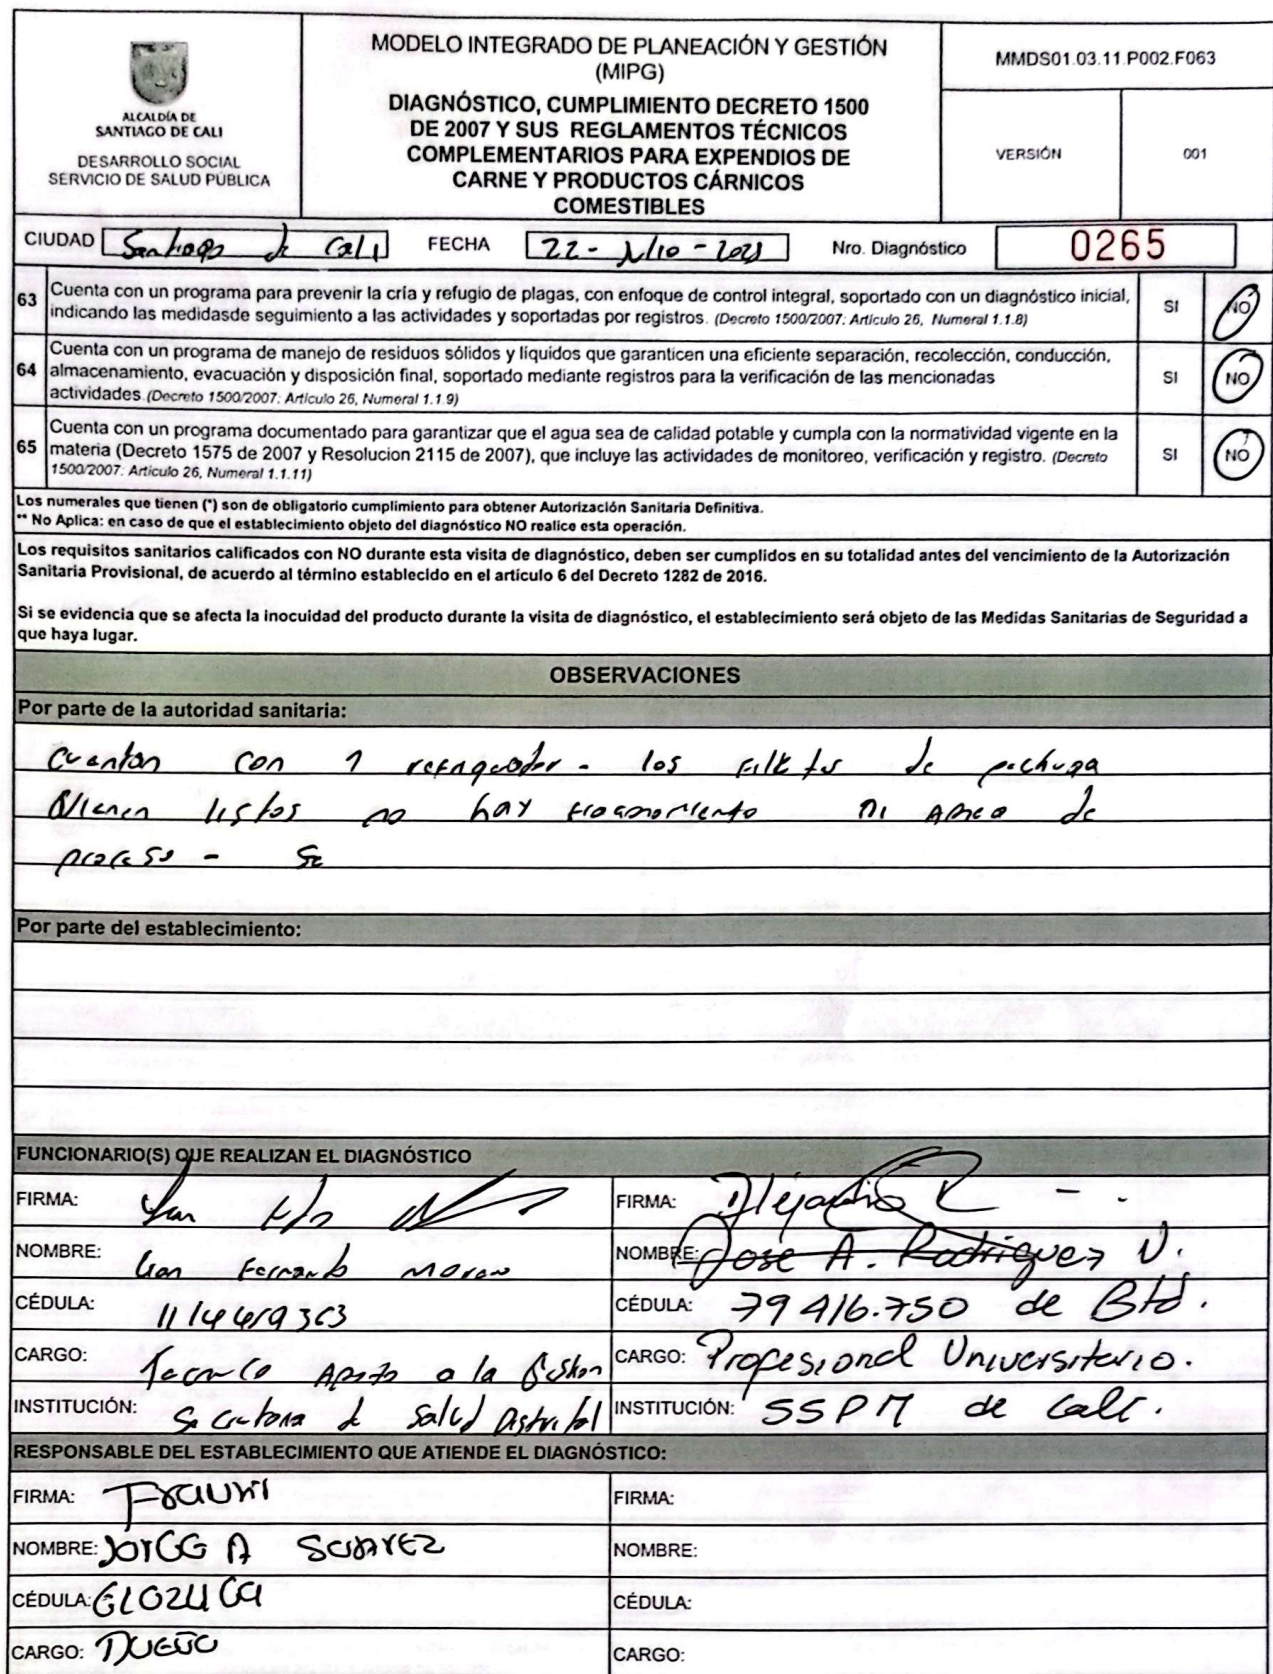 ALCALDÍA DE
SANTIAGO DE CALI
DESARROLLO SOCIAL
SERVICIO DE SALUD PÚBLICA
MODELO INTEGRADO DE PLANEACIÓN Y GESTIÓN
(MIPG)
DIAGNÓSTICO, CUMPLIMIENTO DECRETO 1500
DE 2007 Y SUS REGLAMENTOS TÉCNICOS
COMPLEMENTARIOS PARA EXPENDIOS DE
CARNE Y PRODUCTOS CÁRNICOS
COMESTIBLES
MMDS01.03.11.P002.F063
VERSIÓN 001
CIUDAD Santiago de Cali FECHA 22-Julio-2021 Nro. Diagnóstico 0265
63 Cuenta con un programa para prevenir la cría y refugio de plagas, con enfoque de control integral, soportado con un diagnóstico inicial, SI NO
indicando las medidasde seguimiento a las actividades y soportadas por registros. (Decreto 1500/2007: Artículo 26, Numeral 1.1.8)
64 Cuenta con un programa de manejo de residuos sólidos y líquidos que garanticen una eficiente separación, recolección, conducción, SI NO
almacenamiento, evacuación y disposición final, soportado mediante registros para la verificación de las mencionadas
actividades.(Decreto 1500/2007: Artículo 26, Numeral 1.1.9)
65 Cuenta con un programa documentado para garantizar que el agua sea de calidad potable y cumpla con la normatividad vigente en la SI NO
materia (Decreto 1575 de 2007 y Resolucion 2115 de 2007), que incluye las actividades de monitoreo, verificación y registro. (Decreto
1500/2007: Artículo 26, Numeral 1.1.11)
Los numerales que tienen (*) son de obligatorio cumplimiento para obtener Autorización Sanitaria Definitiva.
** No Aplica: en caso de que el establecimiento objeto del diagnóstico NO realice esta operación.
Los requisitos sanitarios calificados con NO durante esta visita de diagnóstico, deben ser cumplidos en su totalidad antes del vencimiento de la Autorización
Sanitaria Provisional, de acuerdo al término establecido en el artículo 6 del Decreto 1282 de 2016.
Si se evidencia que se afecta la inocuidad del producto durante la visita de diagnóstico, el establecimiento será objeto de las Medidas Sanitarias de Seguridad a
que haya lugar.
OBSERVACIONES
Por parte de la autoridad sanitaria:
Cuentan con 1 - los de pechuga
Vienen listos no hay ni Area de
proceso - Se
Por parte del establecimiento:
FUNCIONARIO(S) QUE REALIZAN EL DIAGNÓSTICO
FIRMA: FIRMA: Alejandro R
NOMBRE: Fernando Moreno NOMBRE: Jose A. Rodriguez V.
CÉDULA: CÉDULA: 79416.750 de Btá.
CARGO: Tecnico Apoyo a la Gestion CARGO: Profesional Universitario.
INSTITUCIÓN: Secretaria de Salud Distrital INSTITUCIÓN: SSPM de Cali.
RESPONSABLE DEL ESTABLECIMIENTO QUE ATIENDE EL DIAGNÓSTICO:
FIRMA: FIRMA:
NOMBRE: JORGE A SUAREZ NOMBRE:
CÉDULA: CÉDULA:
CARGO: DUEÑO CARGO: